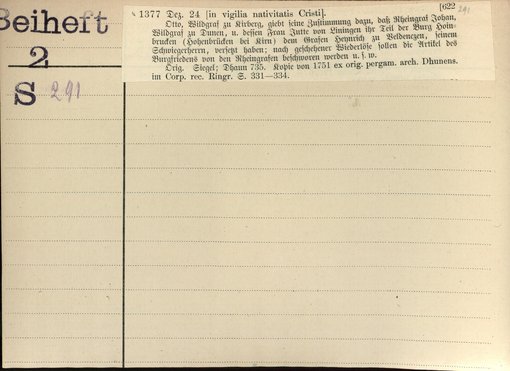 Beiheft
2
S 291
[622
291
1377 Dez. 24 [in vigilia nativitatis Cristi].
Otto, Wildgraf zu Kirberg, giebt seine Zustimmung dazu, daß Rheingraf Johan,
Wildgraf zu Dunen, u. dessen Frau Jutte von Liningen ihr Teil der Burg Hoin-
brucken (Hohenbrücken bei Kirn) dem Grafen Heynrich zu Veldenczen, seinem
Schwiegerherrn, versetzt haben; nach geschehener Wiederlöse sollen die Artikel des
Burgfriedens von den Rheingrafen beschworen werden u. s. w.
Orig. Siegel; Dhaun 735. Kopie von 1751 ex orig. pergam. arch. Dhunens.
im Corp. rec. Ringr. S. 331—334.